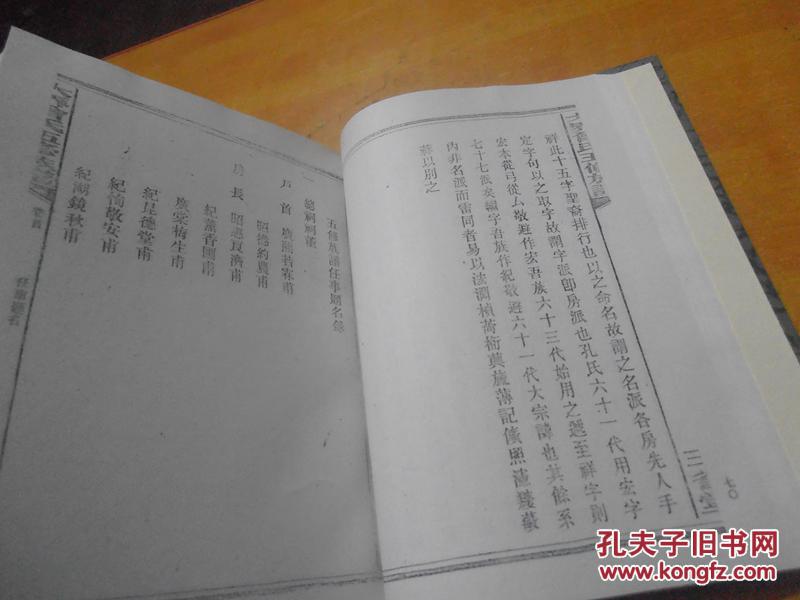 祥此十五字聖裔排行也以之命名故謂之名派各房先人手
定字句以之取字故謂字派卽房派也孔氏六十一代用宏字
宏本從弓從厶敬避作宏吾族六十三代始用之遞至祥字則
七十七派矣編字吾族作紀敬避六十一代大宗諱也其餘系
內非名派而雷同者易以法
莊以別之
七〇
三省堂
五修族譜任事題名錄
一 總祠祠董
戶首
昭德約農甫
房長 昭惠良濟甫
紀蕭香圃甫
廣棠梅生甫
紀昆德堂甫
紀湖鏡秋甫
卷首
孔夫子旧书网
www.kongfz.com